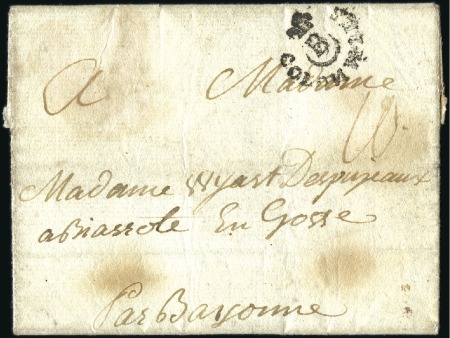 COLONIES
B
A Madame
10
Madame Wyart Despujeaux
a Biarrote En Gosse
Par Bayonne